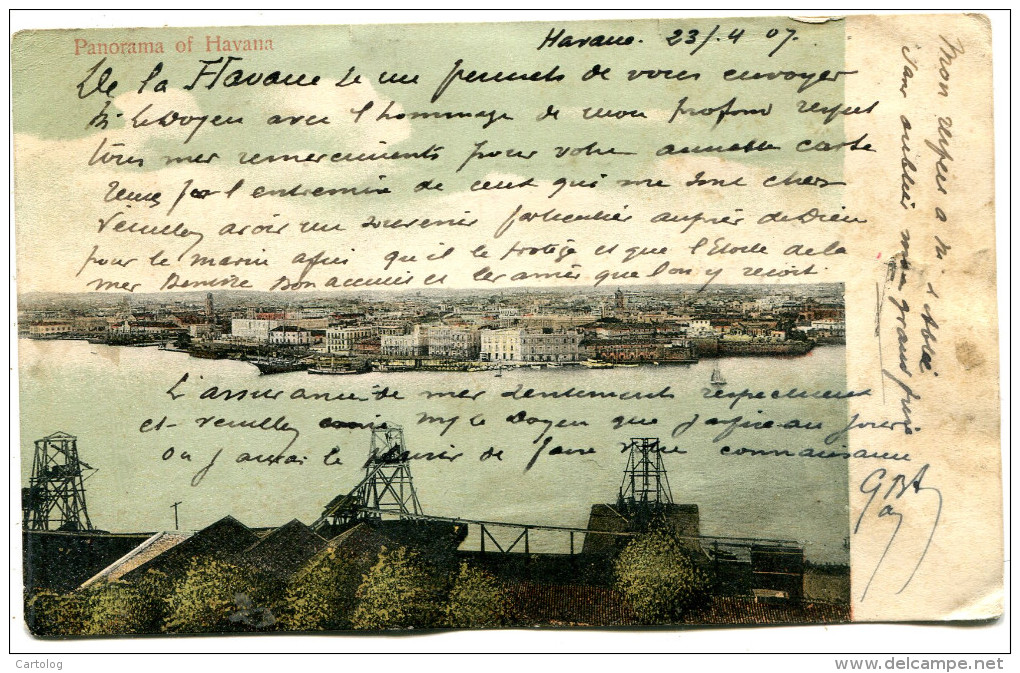 Panorama of Havana
Havane. 23/.4 07.
De la Havane je me permets de vous envoyer
le Doyen avec l'hommage de mon profond respect
tous mes remerciments pour votre carte
par l'entremise de ceux qui me sont chers
Veuillez avoir un souvenir particulier auprès de Dieu
pour le marin afin qu'il le protège et que l'Etoile de la
mer bon accueil et les amène que l'on y reçoit.
L'assurance de mes sentiments respectueux
et veuillez croire Mr le Doyen que j'aspire au jour
où j'aurai le plaisir de faire votre connaissance
Mon respect à Mr l'Abbé
sans oublier mon grand père
Cartolog
www.delcampe.net